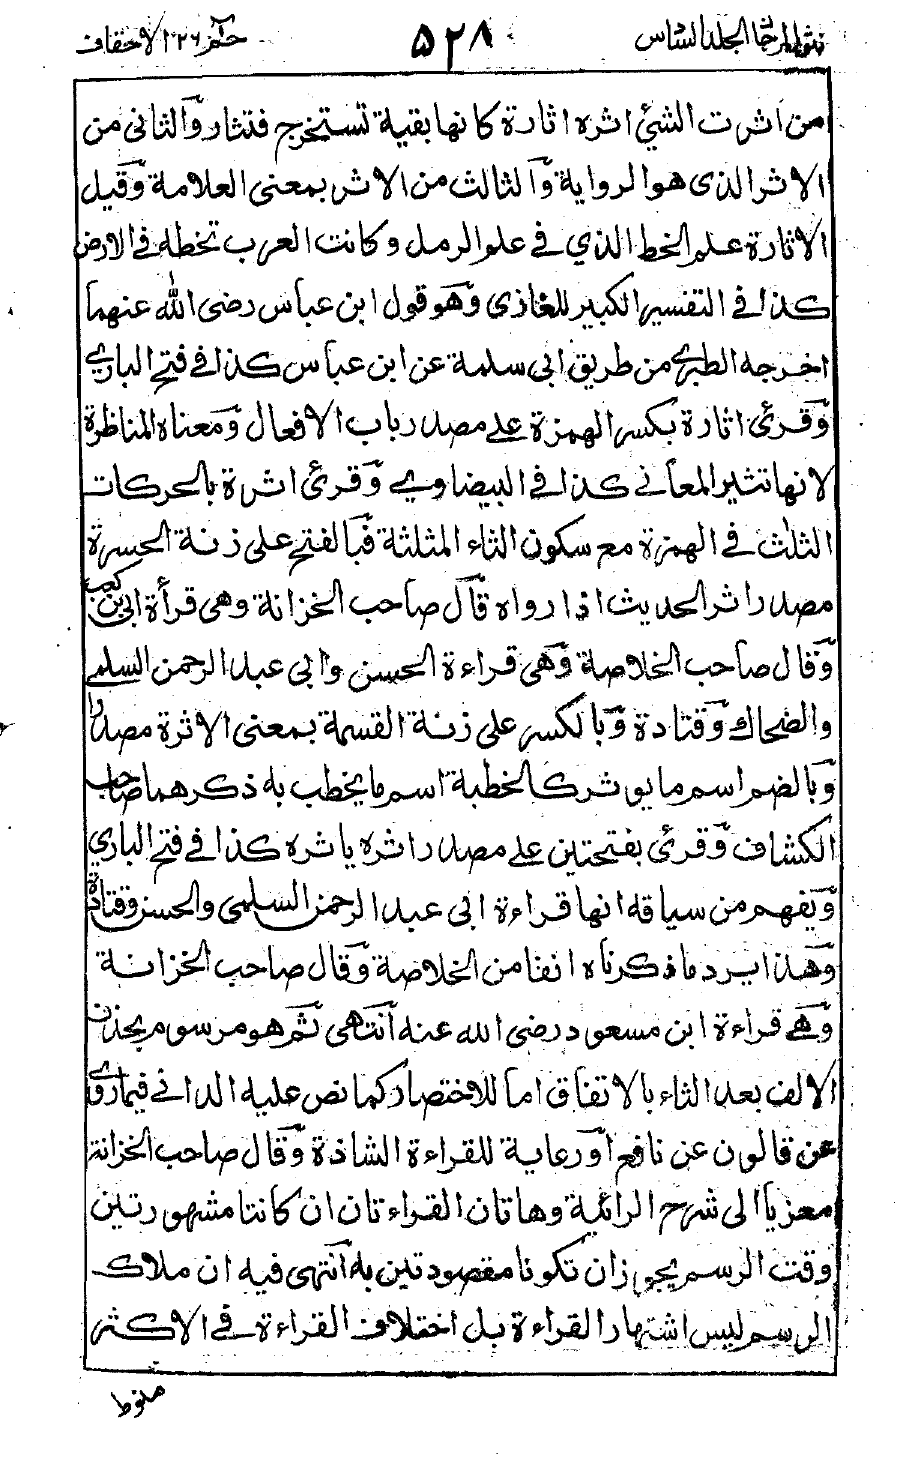 نثر المرجان الجلد السادس ۵۲۸ حٰم ۲۶ الاحقاف
من اثرت الشئ اثره اثارة كانها بقية تستخرج فتثار والثانى من
الاثر الذى هو الرواية والثالث من الاثر بمعنى العلامة وقيل
الاثارة علم الخط الذي في علم الرمل وكانت العرب تخطه في الارض
كذا في التفسير الكبير للغازى وهو قول ابن عباس رضى الله عنهما
اخرجه الطبرى من طريق ابى سلمة عن ابن عباس كذا في فتح الباري
وقرئ اثارة بكسر الهمزة على مصدر باب الافعال ومعناه المناظرة
لانها تثير المعاني كذا في البيضاوي وقرئ اثرة بالحركات
الثلث في الهمزة مع سكون الثاء المثلثة فبالفتح على زنة الحسرة
مصدر اثر الحديث اذا رواه قال صاحب الخزانة وهى قرأة ابى بن كعب
وقال صاحب الخلاصة وهى قراءة الحسن وابى عبد الرحمن السلمي
والضحاك وقتادة وبالكسر على زنة القسمة بمعنى الاثرة مصدرا
وبالضم اسم ما يوثر كالخطبة اسم ما يخطب به ذكرهما صاحب
الكشاف وقرئ بفتحتين على مصدر اثره ياثره كذا في فتح الباري
ويفهم من سياقه انها قراءة ابى عبد الرحمن السلمى والحسن وقتادة
وهذا يرد ما ذكرناه انفا من الخلاصة وقال صاحب الخزانة
وهي قراءة ابن مسعود رضى الله عنه انتهى ثم هو مرسوم بحذف
الالف بعد الثاء بالاتفاق اما للاختصار كما نص عليه الداني فيما روى
عن قالون عن نافع او رعاية للقراءة الشاذة وقال صاحب الخزانة
معزيا الى شرح الرائية وهاتان القراءتان ان كانتا مشهورتين
وقت الرسم يجوز ان تكونا مقصودتين به انتهى فيه ان ملاك
الرسم ليس اشتهار القراءة بل اختلاف القراءة في الاكثر
ملوط